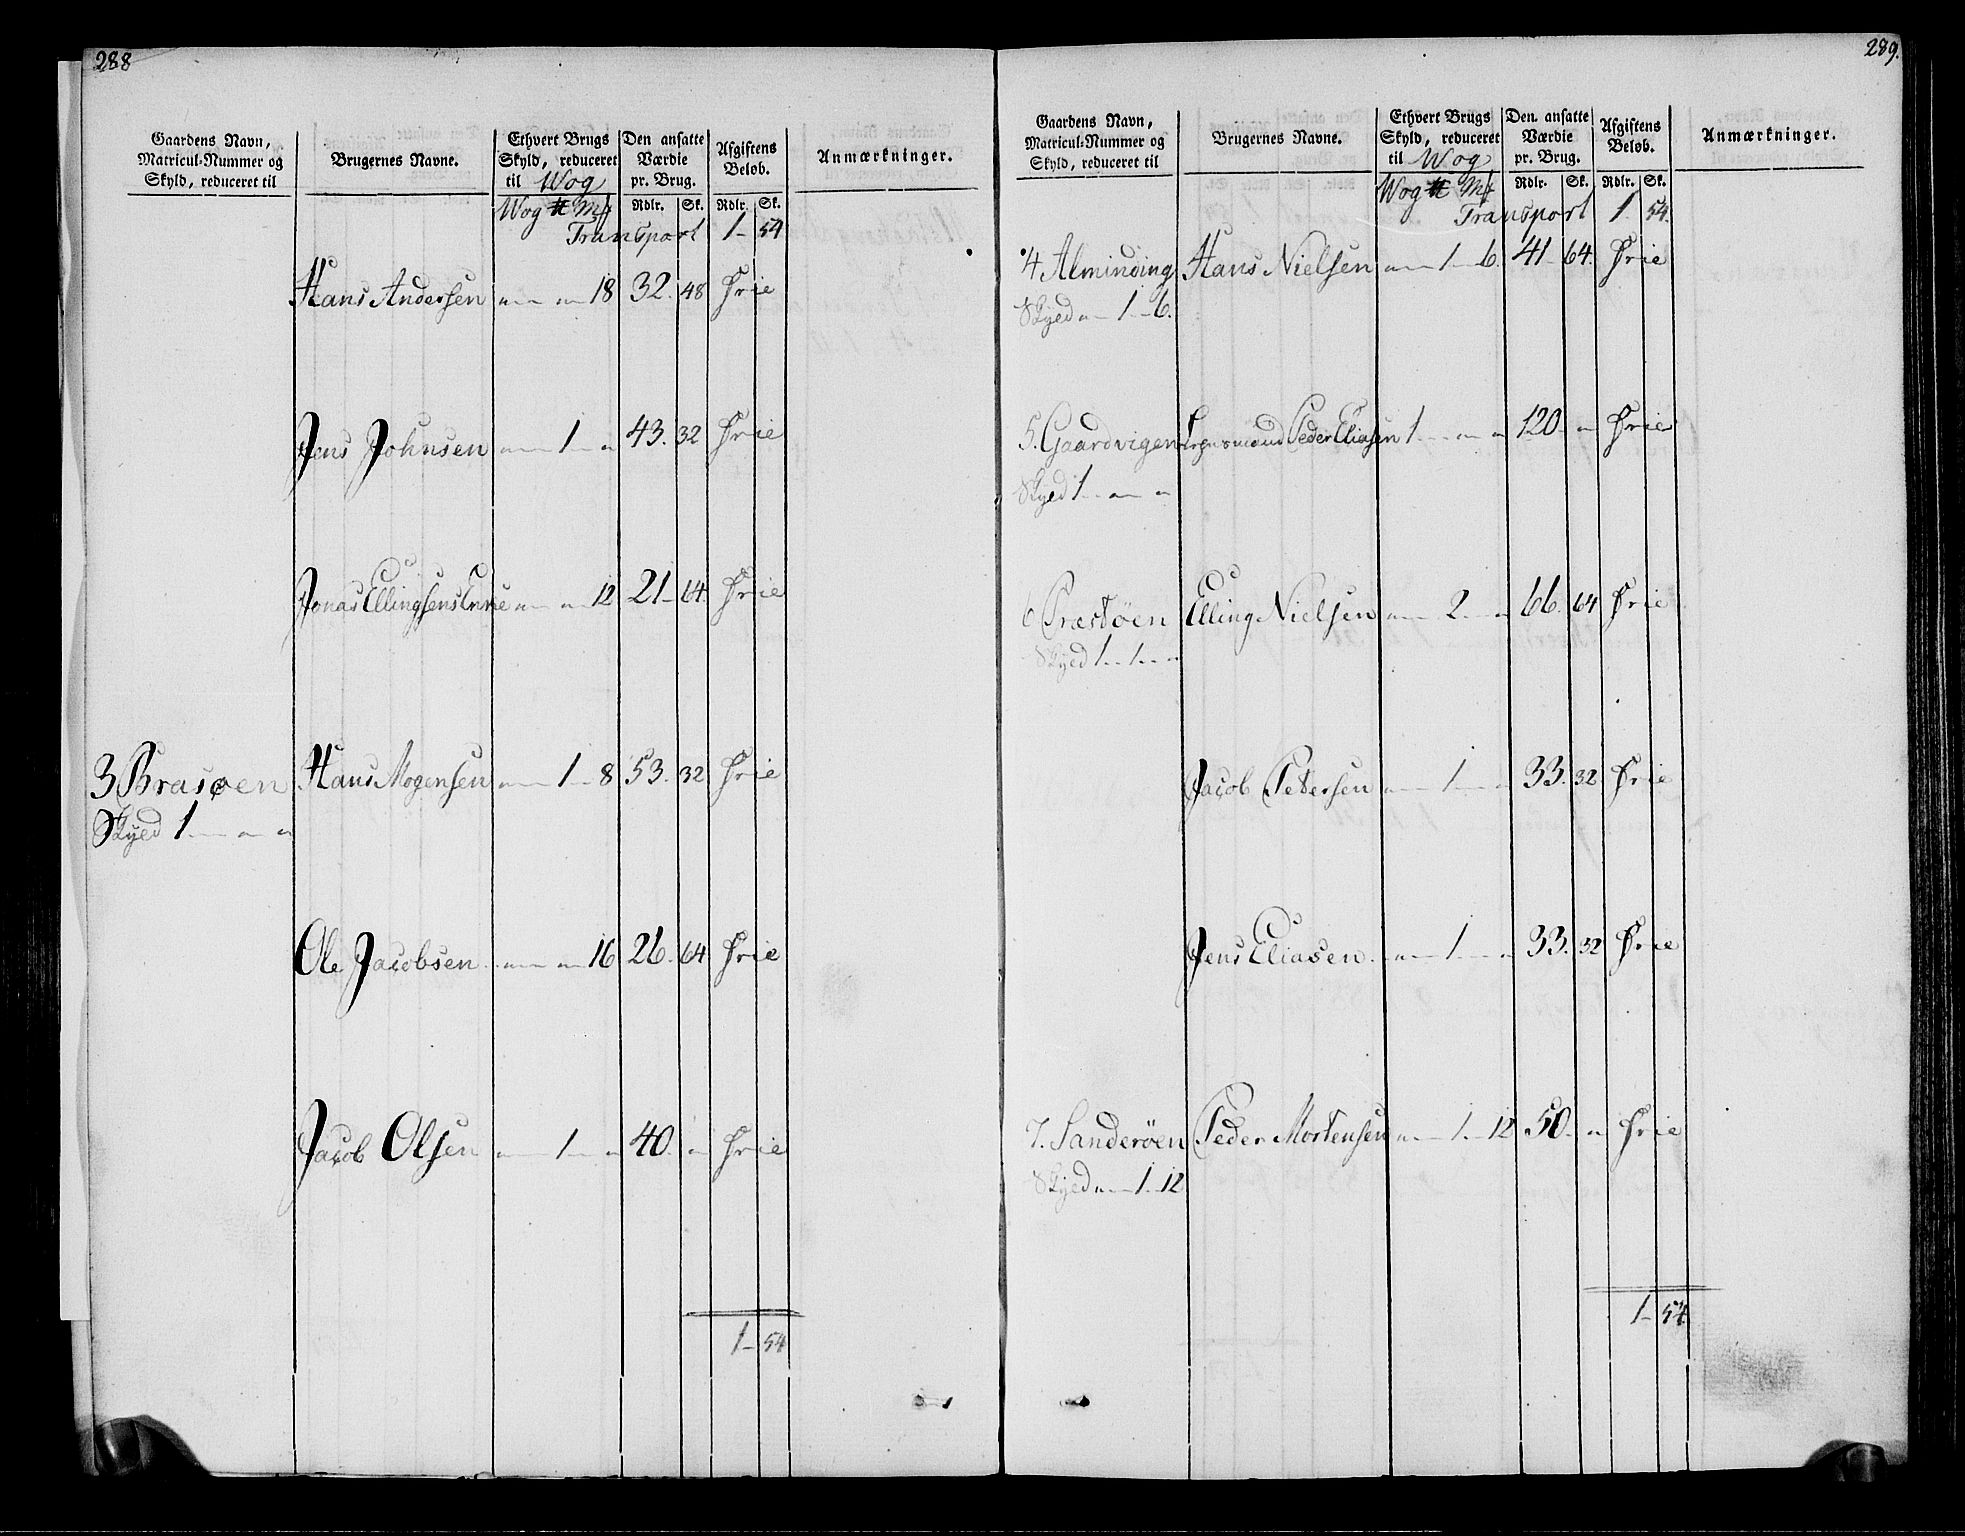 288
Gaardens Navn, Matricul-Nummer og Skyld, reduceret til
Brugernes Navne.
Ethvert Brugs Skyld, reduceret til Wog
Den ansatte Værdie pr. Brug.
Afgiftens Beløb.
Anmærkninger.
Wog ℔ Mk Rdlr. Sk. Rdlr. Sk.
Transport 1 - 54
Hans Andersen 18 32. 48 Frie
Jens Johnsen 1 43. 32 Frie
Jonas Ellingsens Enke 12 21 - 64. Frie
3 Brasøen Hans Mogensen 1 - 8 53. 32 Frie
Skyld 1
Ole Jacobsen 16 26. 64 Frie
Jacob Olsen 1 40. Frie
1 - 54
289.
Gaardens Navn, Matricul-Nummer og Skyld, reduceret til
Brugernes Navne.
Ethvert Brugs Skyld, reduceret til Wog
Den ansatte Værdie pr. Brug.
Afgiftens Beløb.
Anmærkninger.
Wog ℔ Mk Rdlr. Sk. Rdlr. Sk.
Transport 1. 54.
4 Alminding Hans Nielsen 1 - 6. 41 64. Frie
Skyld 1 - 6.
5. Gaardvigen Peder Eliasen 1 120 Frie
Skyld 1
6 Præstøen Elling Nielsen 2 66. 64 Frie
Skyld 1 - 1
Jacob Petersen 1 33. 32 Frie
Jens Eliasen 1 33. 32 Frie
7. Sanderøen Peder Mortensen 1 - 12 50. Frie
Skyld 1 - 12
1 - 54.